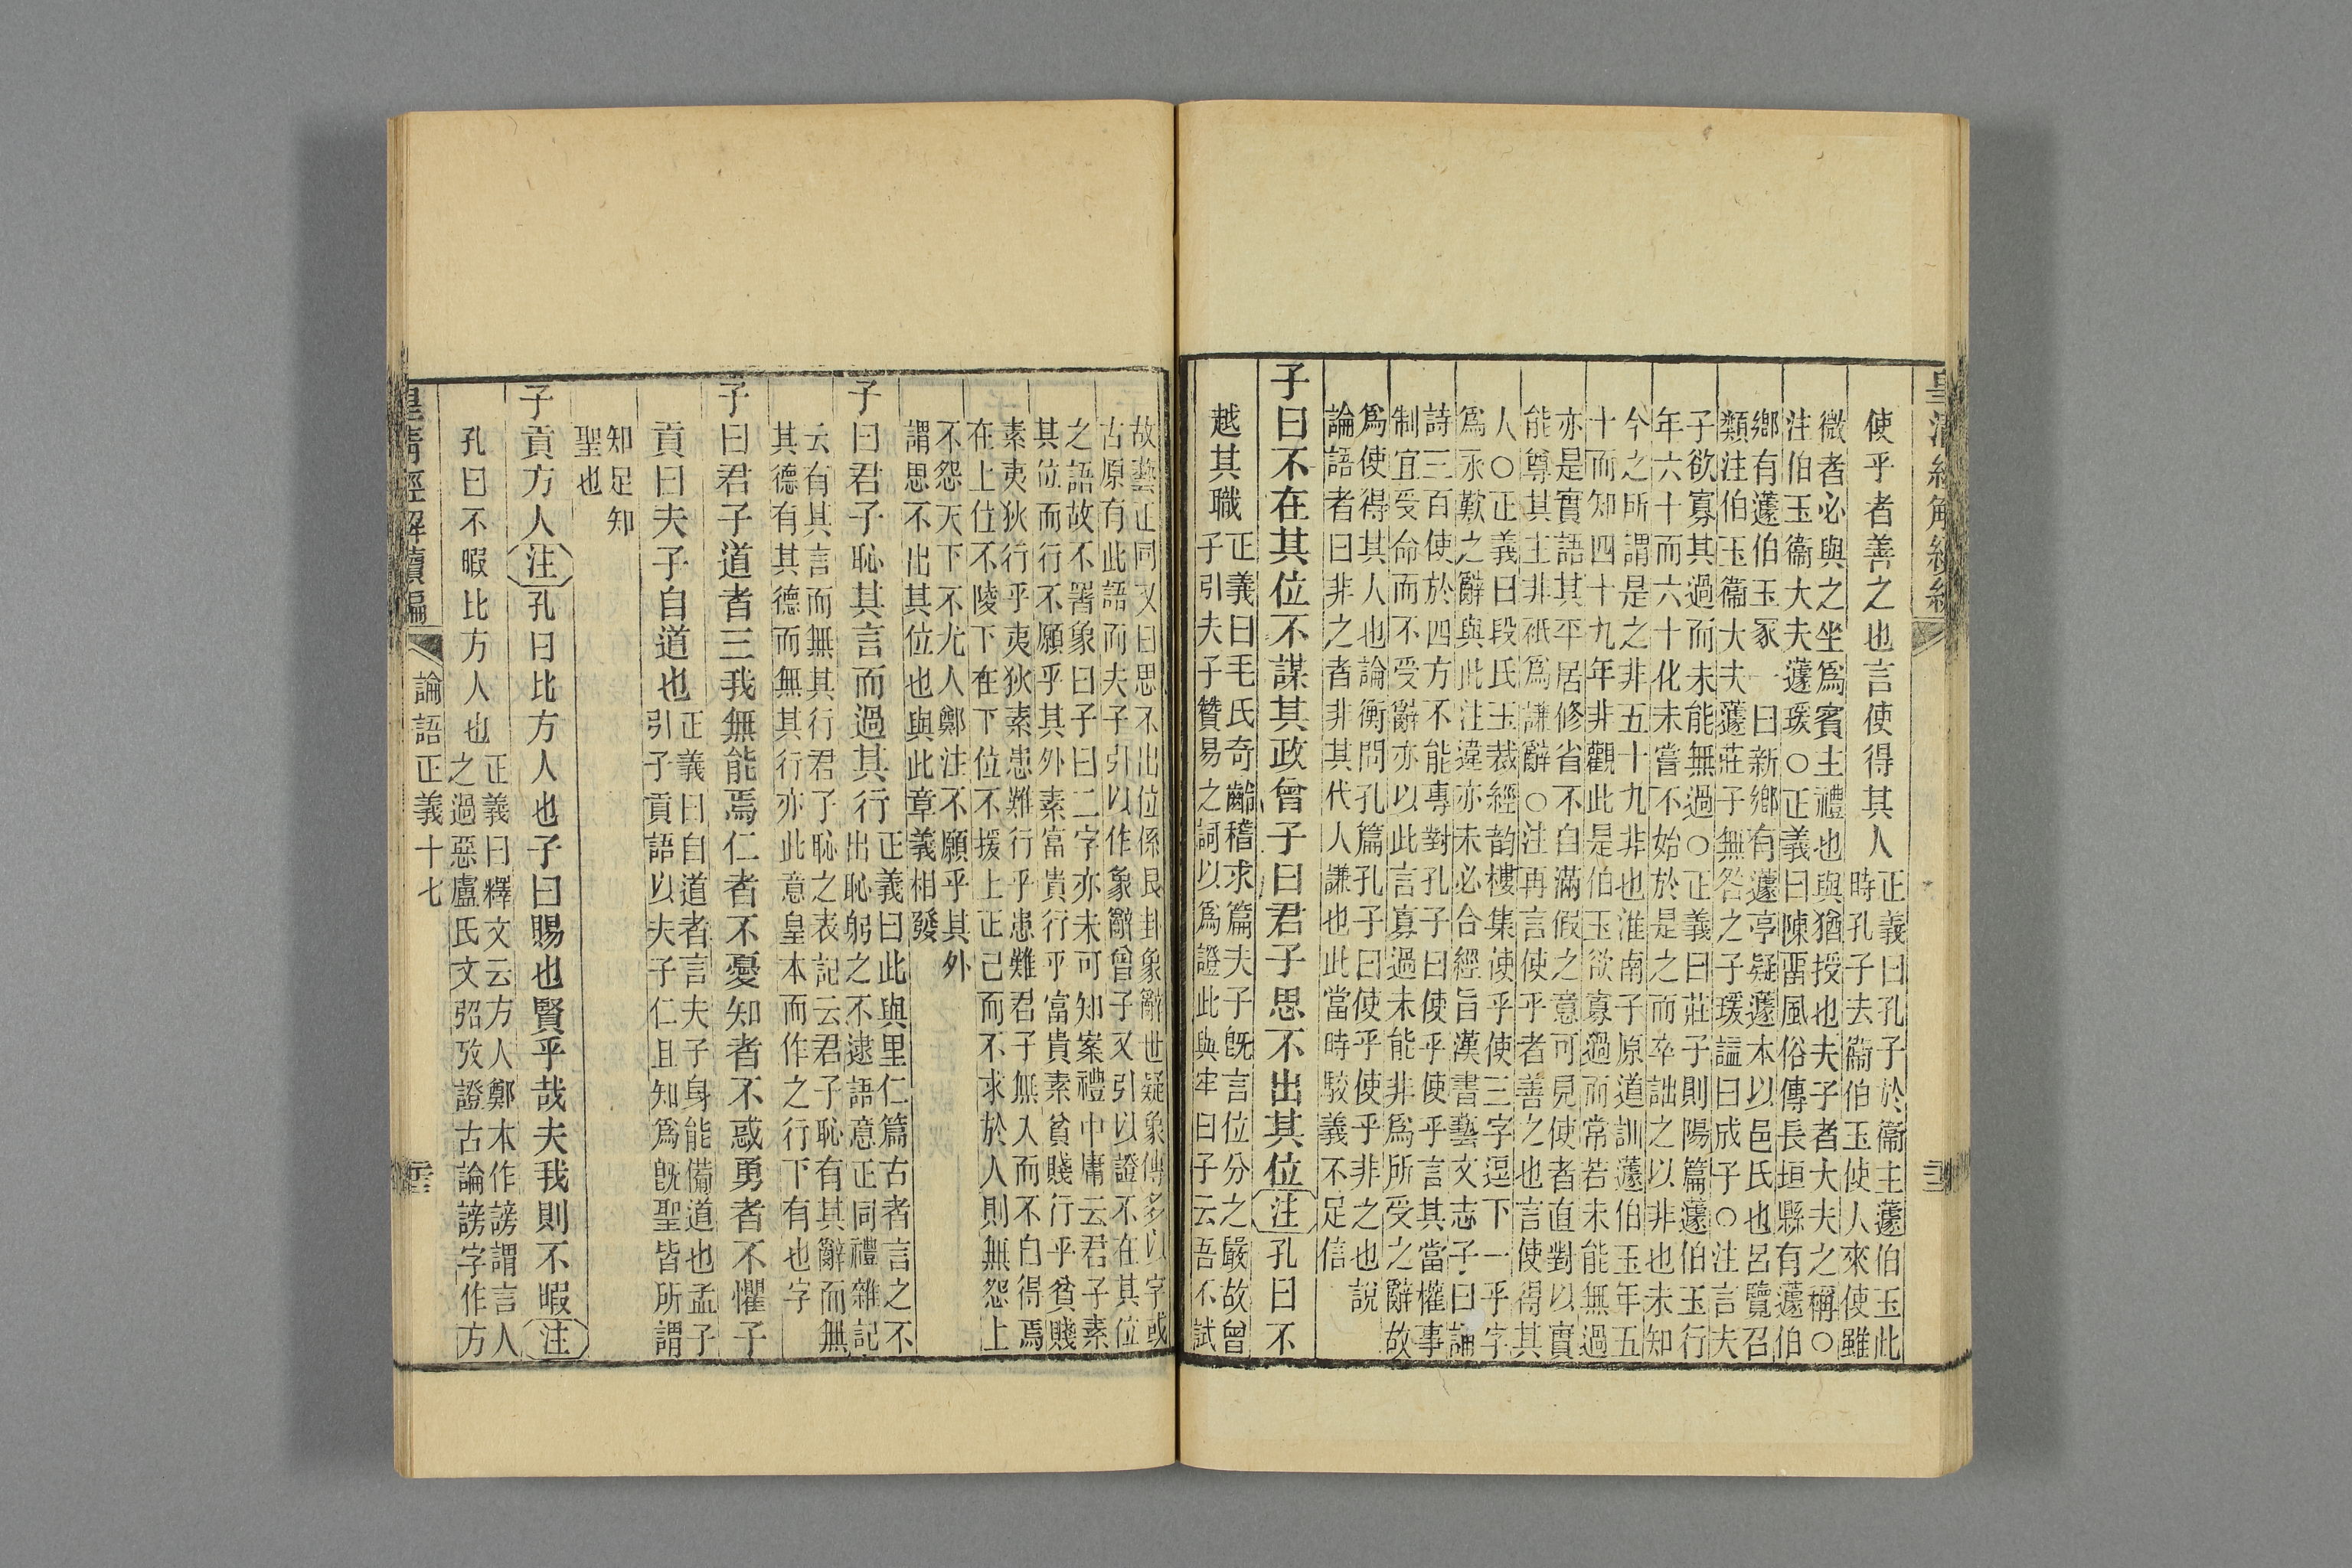 皇清經解續編
使乎者善之也言使得其人
正義曰孔子於衞主蘧伯玉此
時孔子去衞伯玉使人來使雖
微者必與之坐爲賓主禮也與猶授也夫子者大夫之稱○
注伯玉衞大夫蘧瑗○正義曰陳畱風俗傳長垣縣有蘧伯
鄉有蘧伯玉冢一曰新鄉有蘧亭疑蘧本以邑氏也呂覽召
類注伯玉衞大夫蘧莊子無咎之子瑗謚曰成子○注言夫
子欲寡其過而未能無過○正義曰莊子則陽篇蘧伯玉行
年六十而六十化未嘗不始於是之而卒詘之以非也未知
今之所謂是之非五十九非也淮南子原道訓蘧伯玉年五
十而知四十九年非觀此是伯玉欲寡過而常若未能無過
亦是實語其平居修省不自滿假之意可見使者直對以實
能尊其主非祇爲謙辭○注再言使乎者善之也言使得其
人○正義曰段氏玉裁經韵樓集使乎使三字逗下一乎字
爲永歎之辭與此注違亦未必合經旨漢書藝文志子曰誦
詩三百使於四方不能專對孔子曰使乎使乎言其當權事
制宜受命而不受辭亦以此言寡過未能非爲所受之辭故
爲使得其人也論衡問孔篇孔子曰使乎使乎非之也說
論語者曰非之者非其代人謙也此當時駮義不足信
子曰不在其位不謀其政曾子曰君子思不出其位注孔曰不
越其職
正義曰毛氏奇齡稽求篇夫子旣言位分之嚴故曾
子引夫子贊易之詞以爲證此與牢曰子云吾不試
故藝正同又曰思不出位係艮卦象辭世疑象傳多以字或
古原有此語而夫子引以作象辭曾子又引以證不在其位
之語故不署象曰子曰二字亦未可知案禮中庸云君子素
其位而行不願乎其外素富貴行乎富貴素貧賤行乎貧賤
素夷狄行乎夷狄素患難行乎患難君子無入而不自得焉
在上位不陵下在下位不援上正己而不求於人則無怨上
不怨天下不尤人鄭注不願乎其外
謂思不出其位也與此章義相發
子曰君子恥其言而過其行
正義曰此與里仁篇古者言之不
出恥躬之不逮語意正同禮雜記
云有其言而無其行君子恥之表記云君子恥有其辭而無
其德有其德而無其行亦此意皇本而作之行下有也字
子曰君子道者三我無能焉仁者不憂知者不惑勇者不懼子
貢曰夫子自道也
正義曰自道者言夫子身能備道也孟子
引子貢語以夫子仁且知爲旣聖皆所謂
知足知
聖也
子貢方人注孔曰比方人也子曰賜也賢乎哉夫我則不暇注
孔曰不暇比方人也
正義曰釋文云方人鄭本作謗謂言人
之過惡盧氏文弨攷證古論謗字作方
皇清經解續編
論語正義十七